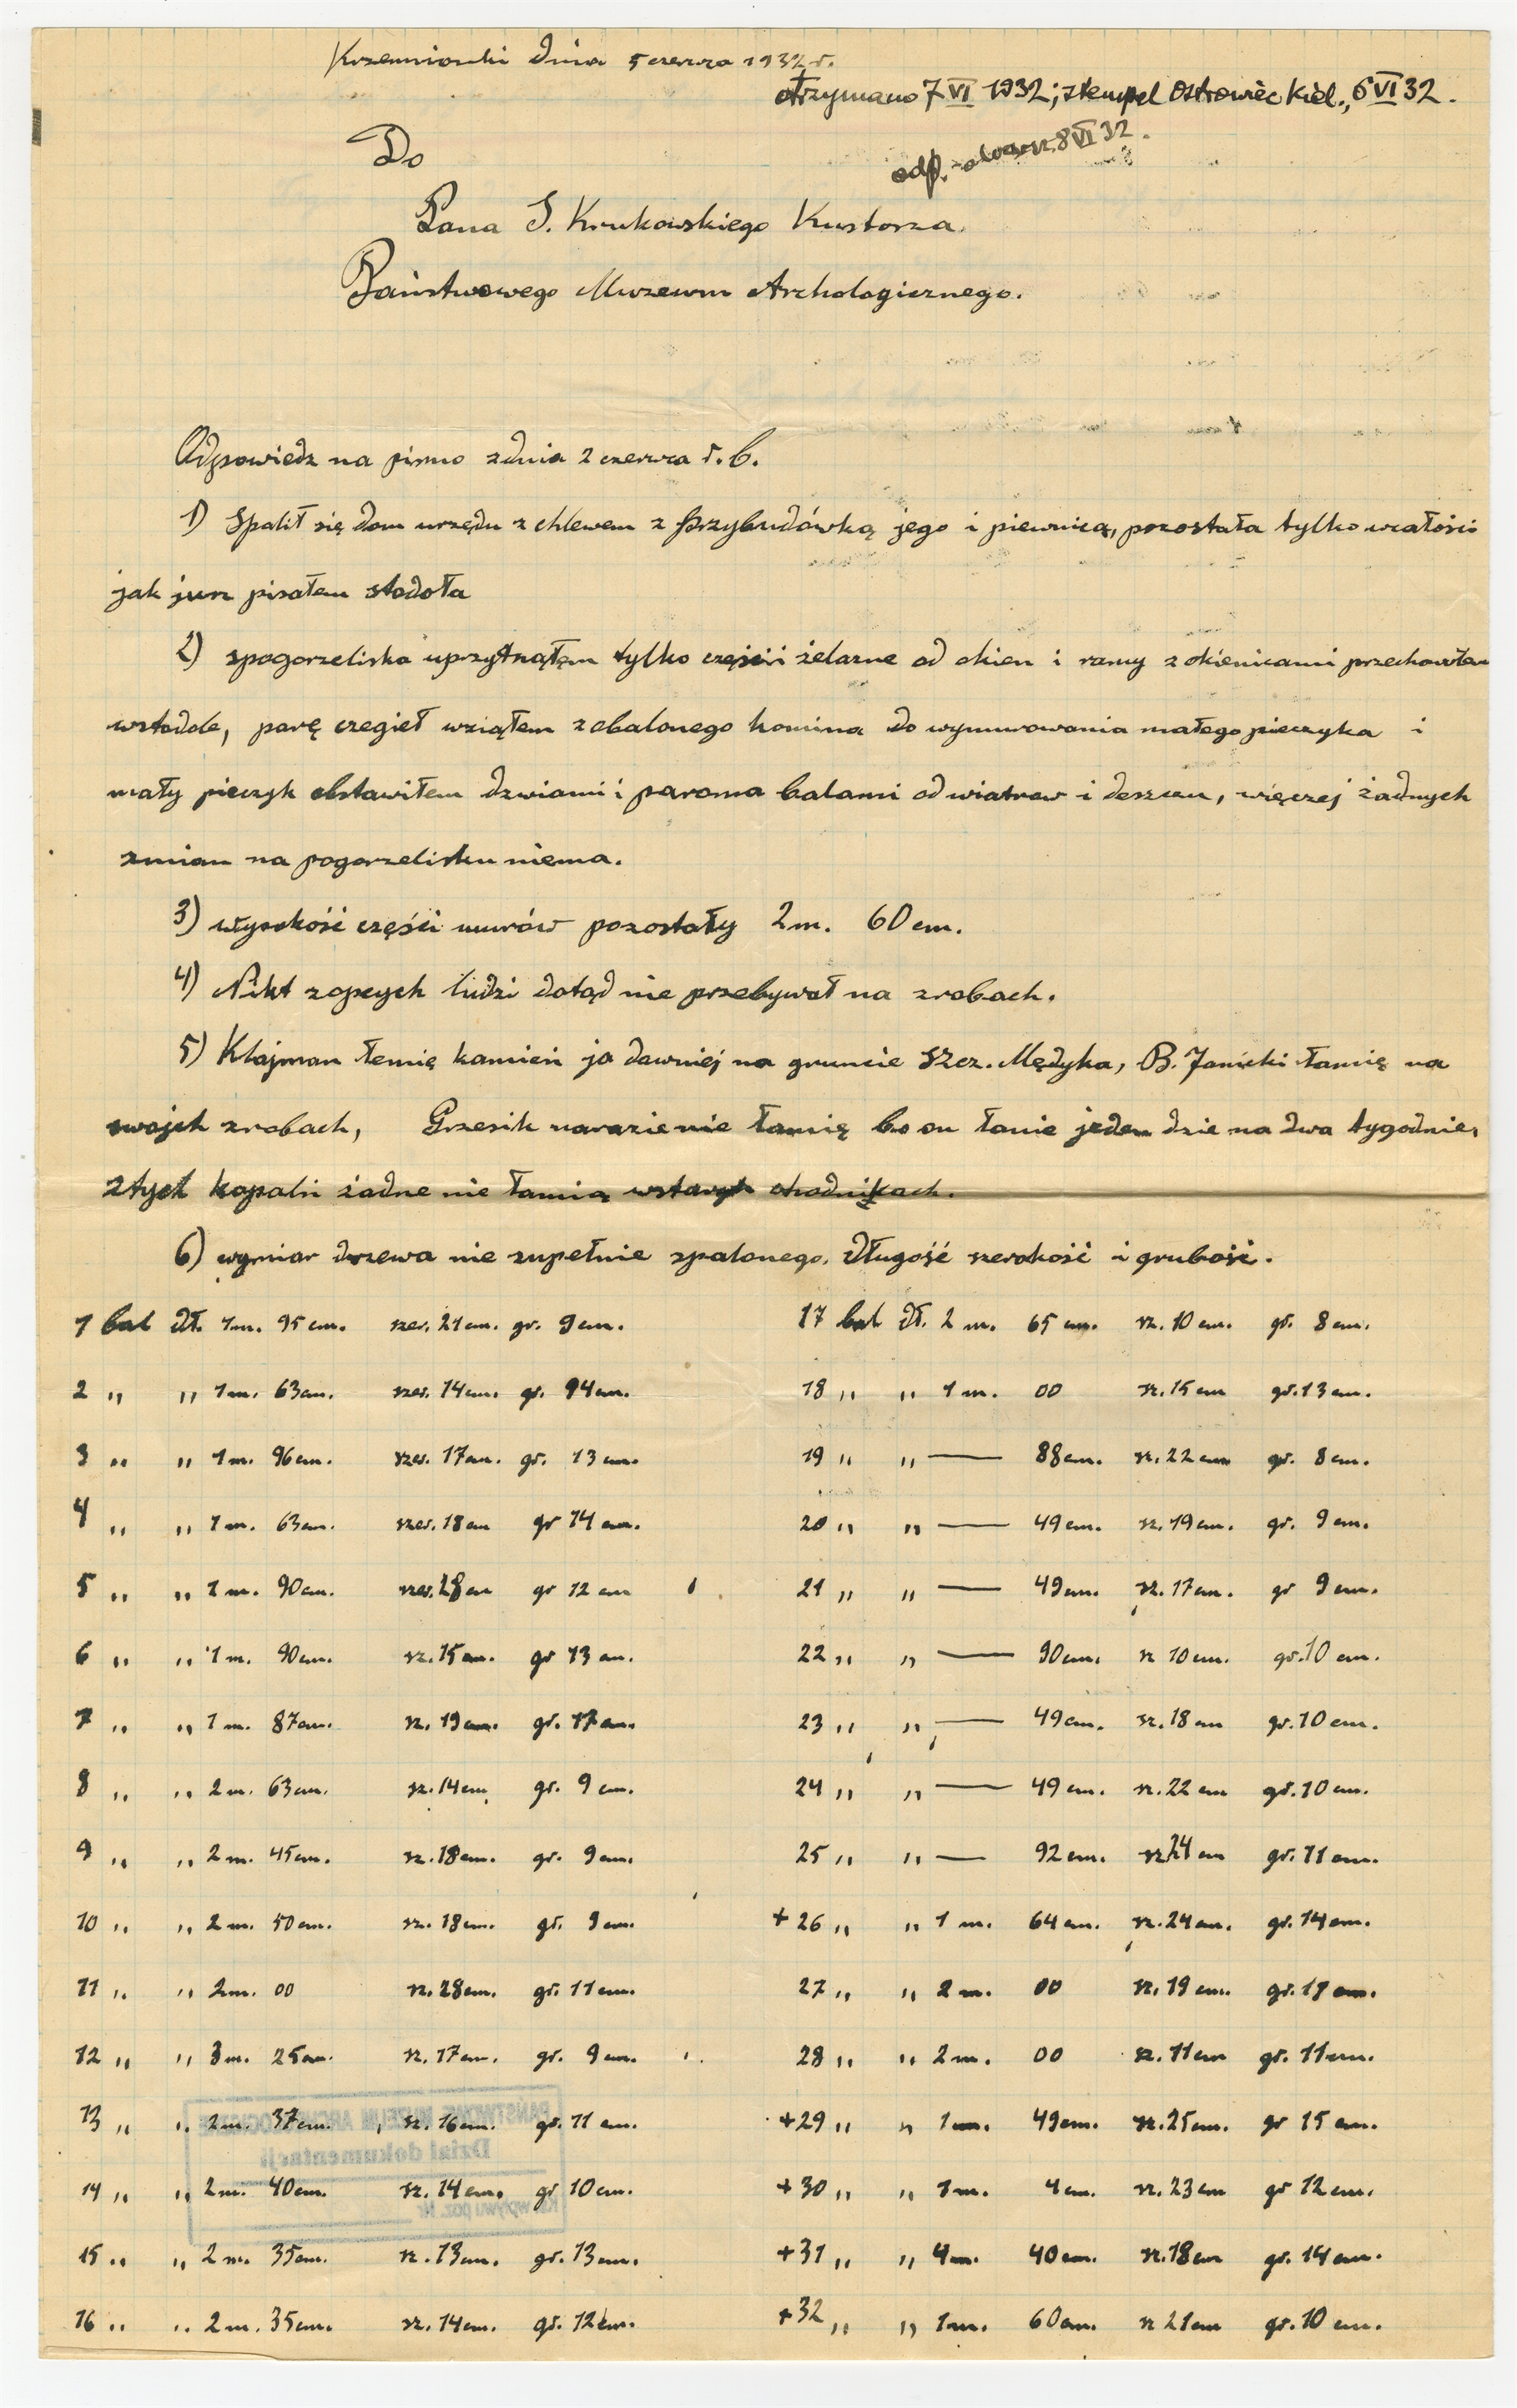 Krzemionki dnia 5 czerwca 1932 r.
otrzymano 7 VI 1932; stempel Ostrowiec Kiel., 6 VI 32.
odp. 8 VI 32.
Do
Pana S. Krukowskiego Kustosza.
Państwowego Muzeum Archologicznego.
Odpowiedz na pismo zdnia 2 czerwca r.b.
1) Spalił się dom urzędu z chlewem z przybudówką jego i piewnica, pozostała tylko wcałości
jak jurz pisałem stodoła
2) spogorzeliska uprzytnąłem tylko części żelazne od okien i ramy z okienicami przechowałem
wstodole, parę czegieł wziąłem zobalonego komina do wymurowania małego pieczyka i
mały pieczyk obstawiłem dzwiami i paroma balami od wiatrow i deszczu, więczej żadnych
zmian na pogorzelisku niema.
3) wysokość części murów pozostały 2 m. 60 cm.
4) Nikt zopcych ludzi dotąd nie przebywał na zrobach.
5) Klajman łemię kamień ja dawniej na gruncie Szcz. Mędyka, B. Janicki łamię na
swojch zrobach, Grzesik narazie nie łamię bo on łamie jeden dzie na dwa tygodnie,
ztych kopalń żadne nie łamią wstarych chodnikach.
6) wymiar drzewa nie zupełnie spalonego. długość szerokość i grubość.
1 bal dł. 1 m. 95 cm. szer. 21 cm. gr. 9 cm. 17 bal dł. 2 m. 65 cm. sz. 10 cm. gr. 8 cm.
2 " " 1 m. 63 cm. szer. 14 cm. gr. 14 cm. 18 " " 1 m. 00 sz. 15 cm gr. 13 cm.
3 " " 1 m. 96 cm. szer. 17 cm. gr. 13 cm. 19 " " — 88 cm. sz. 22 cm gr. 8 cm.
4 " " 1 m. 63 cm. szer. 18 cm gr 14 cm. 20 " " — 49 cm. sz. 19 cm. gr. 9 cm.
5 " " 1 m. 90 cm. szer. 28 cm gr 12 cm 21 " " — 49 cm. sz. 17 cm. gr 9 cm.
6 " " 1 m. 90 cm. sz. 15 cm. gr 13 cm. 22 " " — 90 cm. sz 10 cm. gr. 10 cm.
7 " " 1 m. 87 cm. sz. 19 cm. gr. 17 cm. 23 " " — 49 cm. sz. 18 cm gr. 10 cm.
8 " " 2 m. 63 cm. sz. 14 cm gr. 9 cm. 24 " " — 49 cm. sz. 22 cm gr. 10 cm.
9 " " 2 m. 45 cm. sz. 18 cm. gr. 9 cm. 25 " " — 92 cm. sz 24 cm gr. 11 cm.
10 " " 2 m. 50 cm. sz. 18 cm. gr. 9 cm. + 26 " " 1 m. 64 cm. sz. 24 cm. gr. 14 cm.
11 " " 2 m. 00 sz. 28 cm. gr. 11 cm. 27 " " 2 m. 00 sz. 19 cm. gr. 17 cm.
12 " " 3 m. 25 cm. sz. 17 cm. gr. 9 cm. 28 " " 2 m. 00 sz. 11 cm gr. 11 cm.
13 " " 2 m. 37 cm. sz. 16 cm. gr. 11 cm. + 29 " " 1 m. 49 cm. sz. 25 cm. gr 15 cm.
14 " " 2 m. 40 cm. sz. 14 cm. gr 10 cm. + 30 " " 1 m. 4 cm. sz. 23 cm gr 12 cm.
15 " " 2 m. 35 cm. sz. 13 cm. gr. 13 cm. + 31 " " 4 m. 40 cm. sz. 18 cm gr. 14 cm.
16 " " 2 m. 35 cm. sz. 14 cm. gr. 12 cm. + 32 " " 1 m. 60 cm. sz 21 cm gr. 10 cm.
PAŃSTWOWE MUZEUM ARCHEOLOGICZNE
Dział dokumentacji
Ks. wpływu poz. Nr